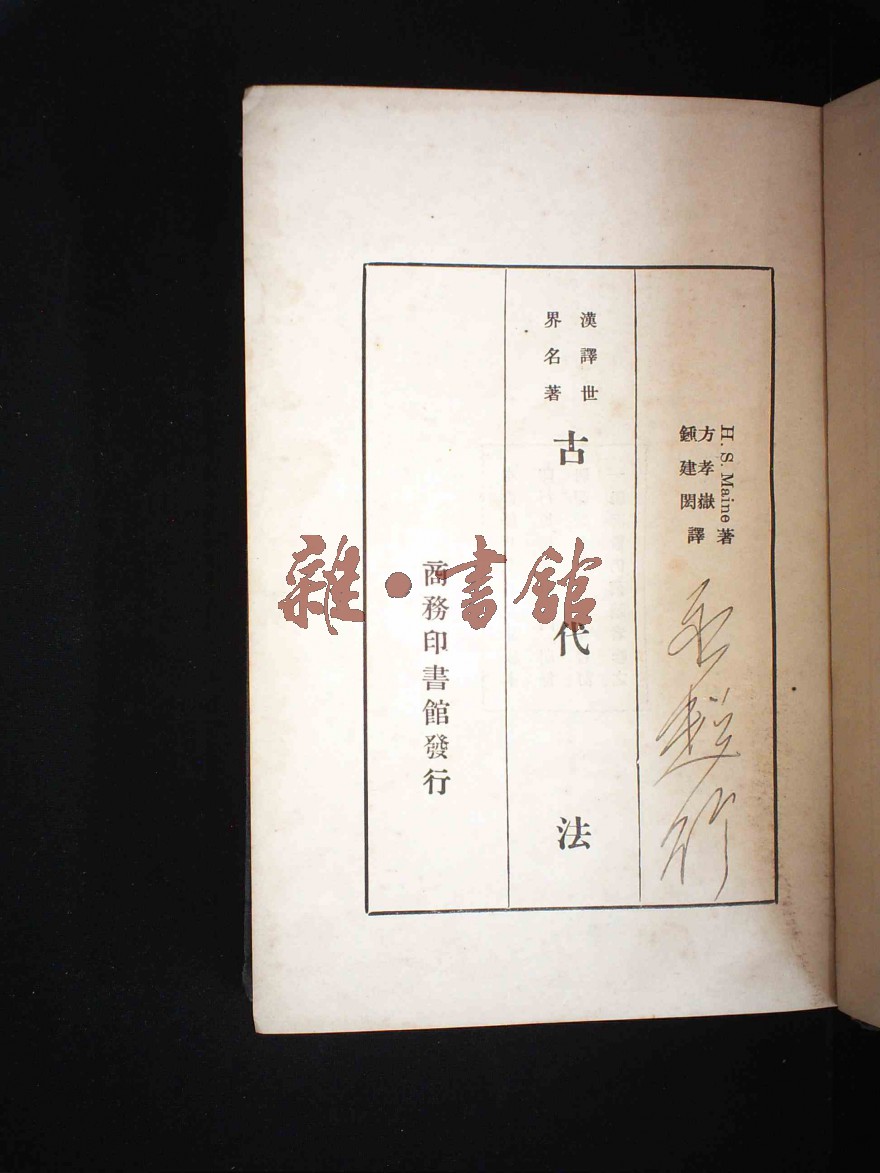 H. S. Maine 著
方孝嶽
鍾建閎 譯
漢譯世
界名著
古代法
商務印書館發行
雜·書館